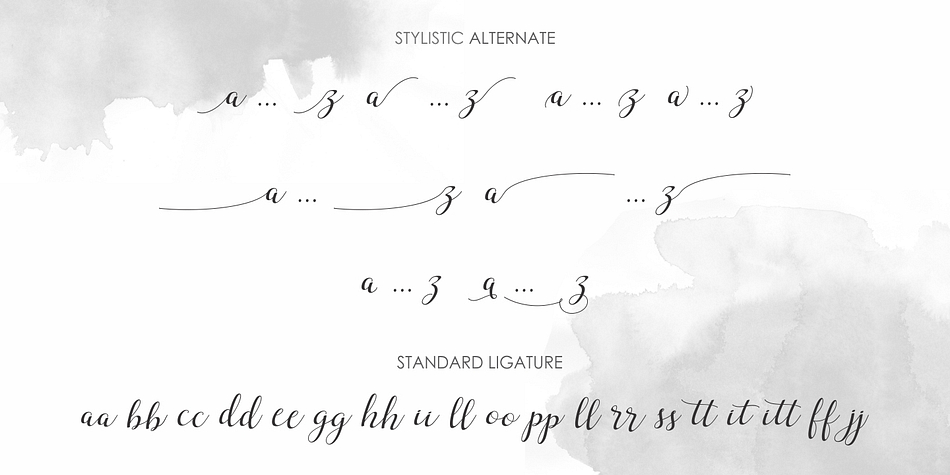 STYLISTIC ALTERNATE
a ... z a ... z a ... z a ... z
a ... z a ... z
a ... z a ... z
STANDARD LIGATURE
aa bb cc dd ee gg hh ii ll oo pp ll rr ss tt it itt ff jj